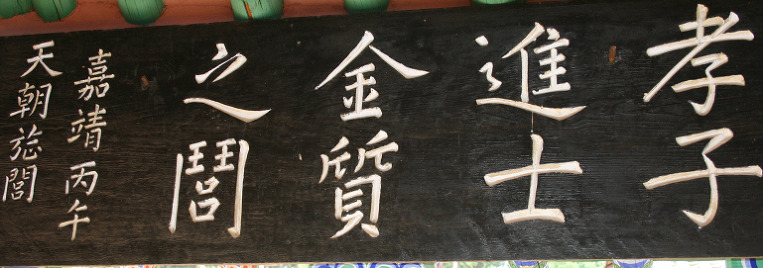 孝子
進士
金質
之閭
嘉靖丙午
天朝旌閭